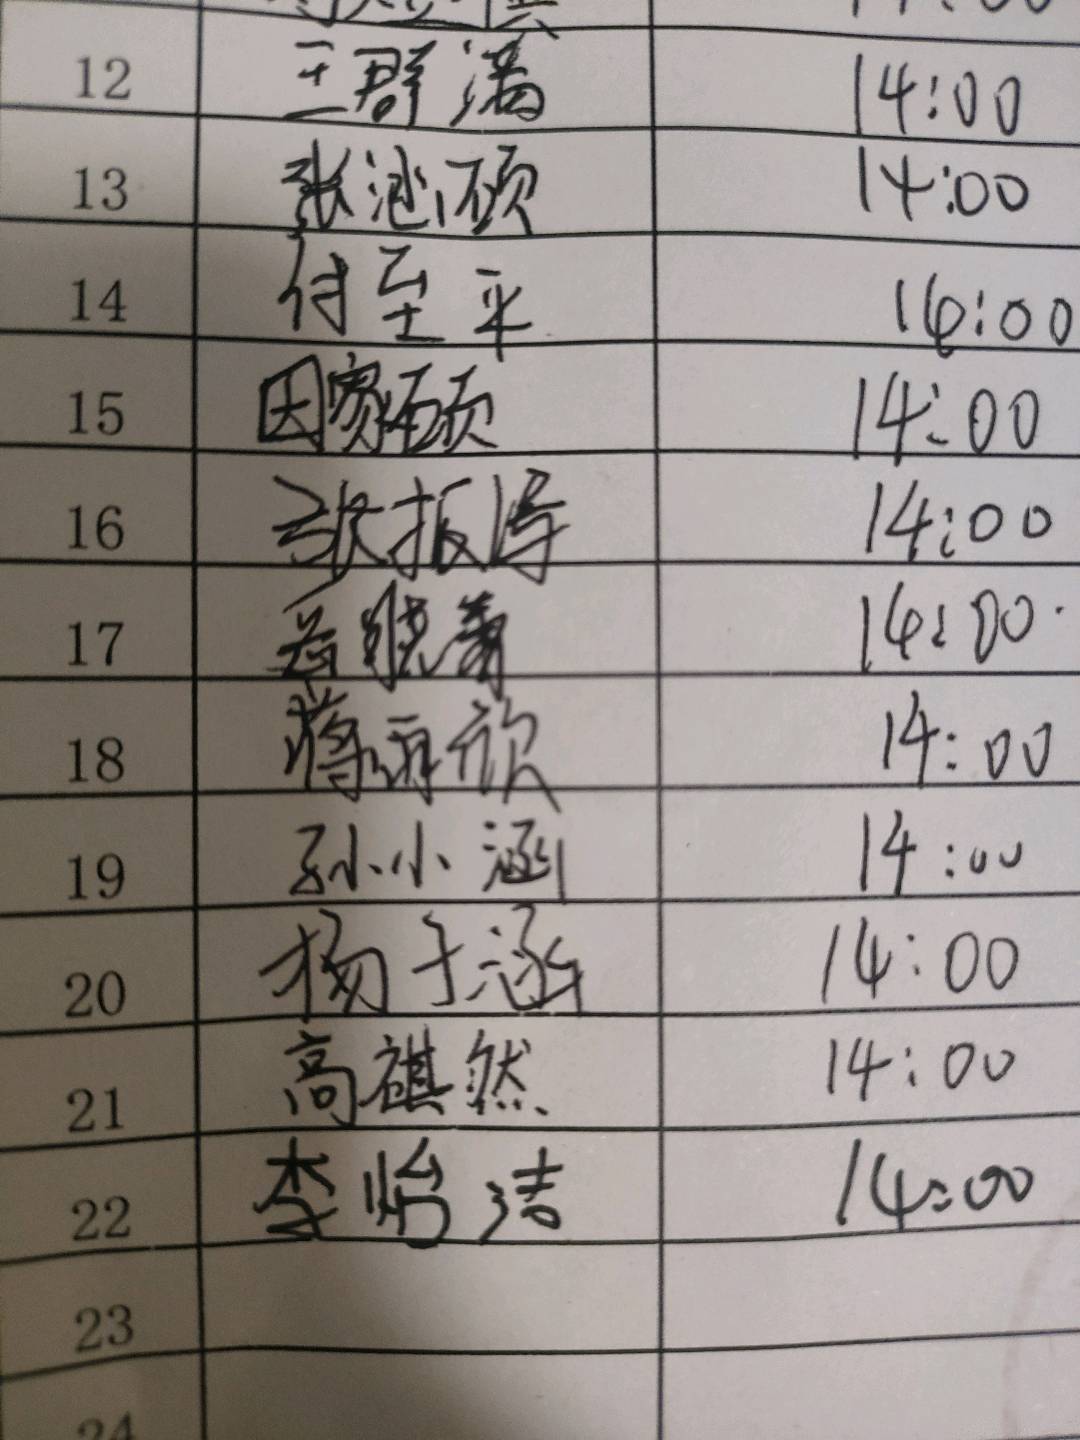 12 王群满 14:00
13 张涵硕 14:00
14 付至平 14:00
15 因家硕 14:00
16 张振涛 14:00
17 14:00
18 蒋雨欣 14:00
19 孙小涵 14:00
20 杨于涵 14:00
21 高祺然 14:00
22 李怡洁 14:00
23
24